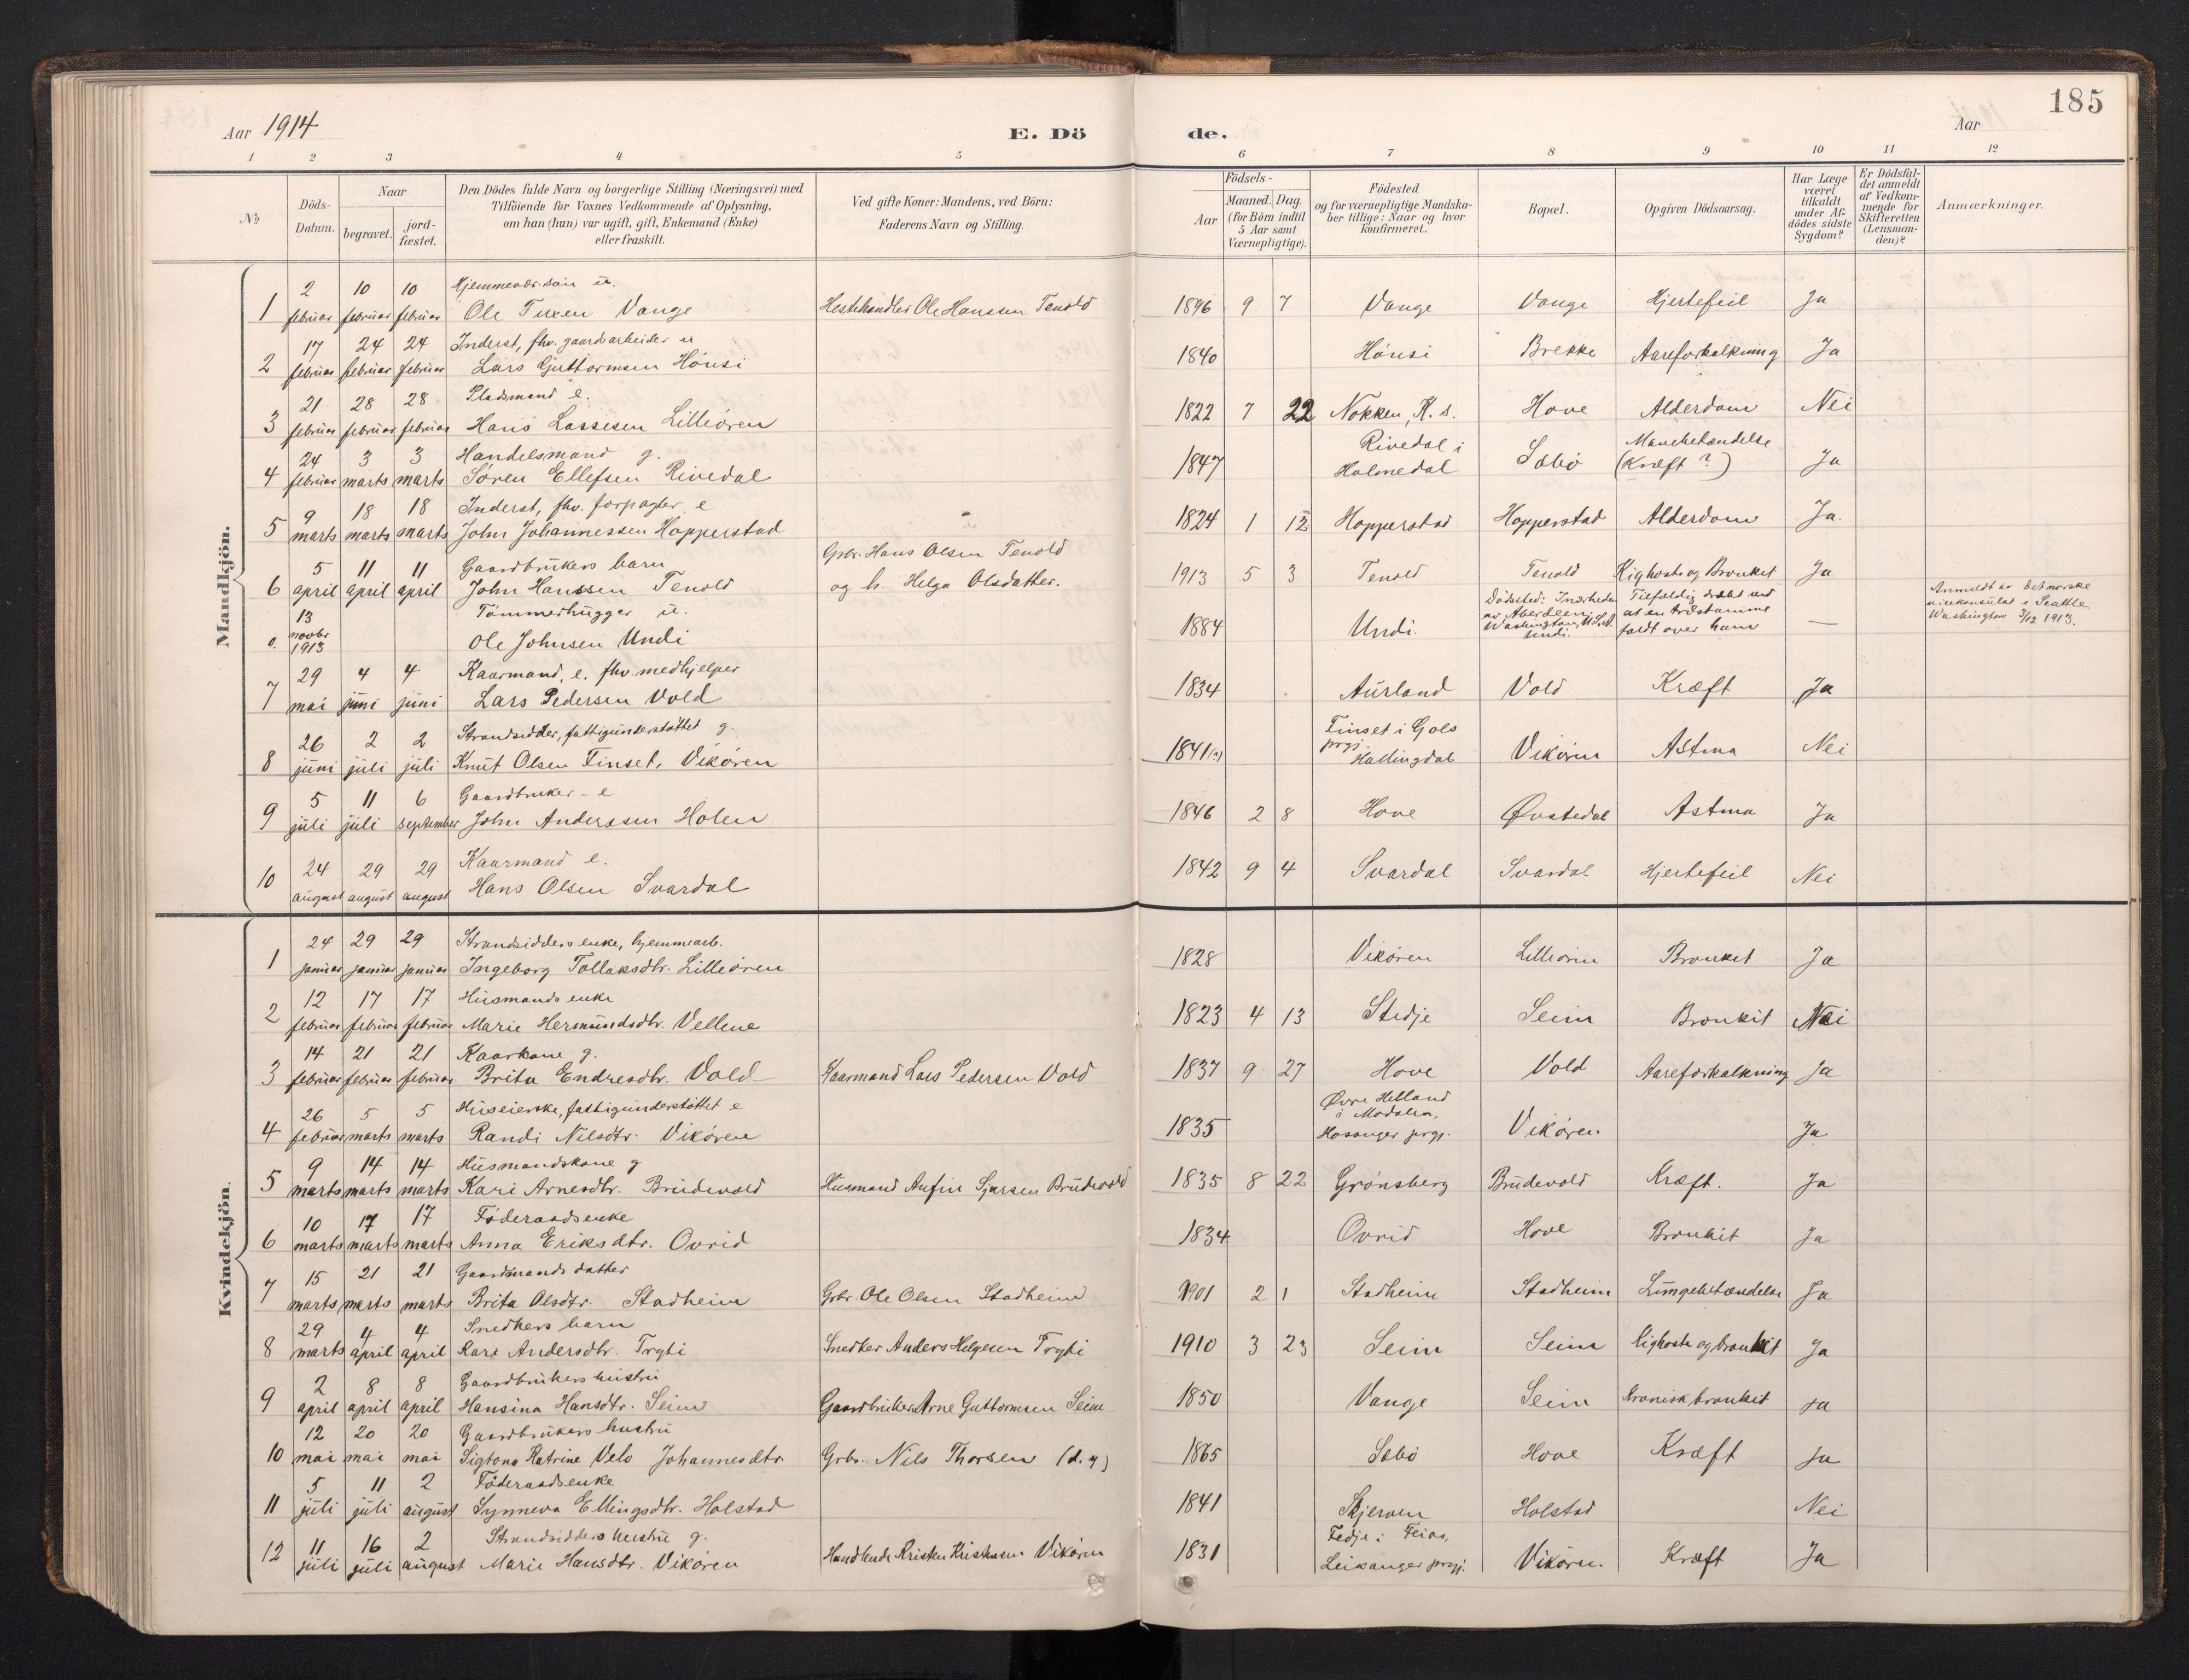 185
Aar 1914
E. Dö
de.
Aar
1 2 3 4 5 6 7 8 9 10 11 12
No
Döds-Datum.
Naar
begravet.
jord-fæstet.
Den Dödes fulde Navn og borgerlige Stilling (Næringsvei) med
Tilföiende for Voxnes Vedkommende af Oplysning,
om han (hun) var ugift, gift, Enkemand (Enke)
eller fraskilt.
Ved gifte Koner: Mandens, ved Börn:
Faderens Navn og Stilling.
Födsels-
Aar
Maaned. Dag.
(for Börn indtil
5 Aar samt
Værnepligtige).
Födested
og for værnepligtige Mandska-
ber tillige: Naar og hvor
konfirmeret.
Bopæl.
Opgiven Dödsaarsag.
Har Læge
været
tilkaldt
under Af-
dödes sidste
Sygdom?
Er Dödsfal-
det anmeldt
af Vedkom-
mende for
Skifteretten
(Lensman-
den)?
Anmærkninger.
Mandkjön.
2 10 10 Hjemmevær. sön u.
1 februar februar februar Ole Tuxen Vange Hestehandler Ole Hanssen Tenold 1896 9 7 Vange Vange Hjertefeil Ja
17 24 24 Inderst, fhv. gaardsarbeider u
2 februar februar februar Lars Guttormsen Hönsi 1840 Hönsi Brekke Aareforkalkning Ja
21 28 28 Pladsmand e.
3 februar februar februar Hans Lassesen Lilleören 1822 7 22 Nökken, K. s. Hove Alderdom Nei
24 3 3 Handelsmand g.
4 februar marts marts Sören Ellefsen Rivedal 1847 Rivedal i Holmedal Sæbö Mavebetændelse (Kræft?) Ja
9 18 18 Inderst, fhv. forpagter, e
5 marts marts marts John Johannessen Hopperstad 1824 1 12 Hopperstad Hopperstad Alderdom Ja.
5 11 11 Gaardbrukers barn Grbr. Hans Olsen Tenold
6 april april april John Hanssen Tenold og h. Helga Olsdatter. 1913 5 3 Tenold Tenold Kighoste og Bronkit Ja
13 Tömmerhugger u.
0. novbr 1913 Ole Johnsen Undi 1884 Undi. Dödssted: I nærheden av Aberdeen, Washington, U.S.A. Undi. Tilfældig dræbt ved at en træstamme faldt over ham — Anmeldt av Det norske vicekonsulat i Seattle, Washington 3/12 1913.
29 4 4 Kaarmand, e. fhv. medhjelper
7 mai juni juni Lars Pedersen Vold 1834 Aurland Vold Kræft Ja
26 2 2 Strandsidder, fattigunderstöttet g.
8 juni juli juli Knut Olsen Finset, Vikören 1841 Finset i Gols prgj. Hallingdal Vikören Astma Nei
5 11 6 Gaardbruker - e
9 juli juli september John Anderssen Holen 1846 2 8 Hove Övstedal Astma Ja
24 29 29 Kaarmand e.
10 august august august Hans Olsen Svardal 1842 9 4 Svardal Svardal Hjertefeil Nei
Kvindekjön.
24 29 29 Strandsidders enke, hjemmearb.
1 januar januar januar Ingeborg Tollaksdtr. Lilleören 1828 Vikören Lilleören Bronkit Ja
12 17 17 Husmands enke
2 februar februar februar Marie Hermundsdtr. Vellene 1823 4 13 Stedje Seim Bronkit Nei
14 21 21 Kaarkone g.
3 februar februar februar Brita Endresdtr. Vold Kaarmand Lars Pedersen Vold 1837 9 27 Hove Vold Aareforkalkning Ja
26 5 5 Huseierske, fattigunderstöttet e
4 februar marts marts Randi Nilsdtr. Vikören 1835 Övre Helland i Modalen, Hosanger prgj. Vikören Ja
9 14 14 Husmandskone g
5 marts marts marts Kari Arnesdtr. Brudevold Husmand Anfin Sjursen Brudevold 1835 8 22 Grönsberg Brudevold Kræft. Ja
10 17 17 Föderaadsenke
6 marts marts marts Anna Eriksdtr. Ovrid 1834 Ovrid Hove Bronkit Ja
15 21 21 Gaardmands datter
7 marts marts marts Brita Olsdtr. Stadheim Grbr. Ole Olsen Stadheim 1901 2 1 Stadheim Stadheim Lungebetændelse Ja
29 4 4 Snedkers barn
8 marts april april Kari Andersdtr. Trygti Snedker Anders Helgesen Trygti 1910 3 23 Seim Seim Kighoste og bronkit Ja
2 8 8 Gaardbrukers hustru
9 april april april Hansina Hansdtr. Seim Gaardbruker Arne Guttormsen Seim 1850 Vange Seim Kronisk bronkit Ja
12 20 20 Gaardbrukers hustru
10 mai mai mai Sigtona Katrine Velo Johannesdtr Grbr. Nils Thorsen (d. y) 1865 Sæbö Hove Kræft Ja
5 11 2 Föderaadsenke
11 juli juli august Synneva Ellingsdtr. Holstad 1841 Skjerven Holstad Nei
11 16 2 Strandsidders hustru g.
12 juli juli august Marie Hansdtr. Vikören Handlende Kristen Kristensen Vikören 1831 Fedje i Feios, Leikanger prgj. Vikören. Kræft Ja